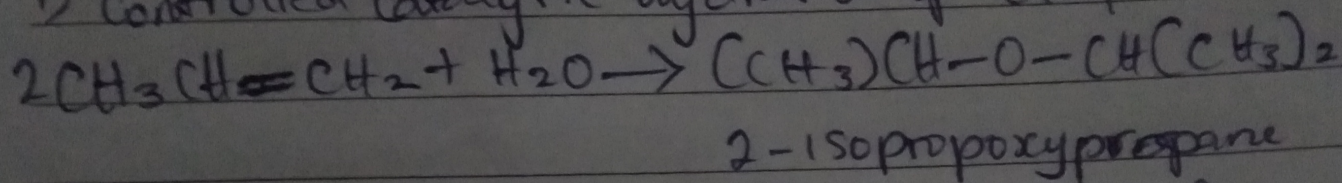 Controlled
2CH3CH=CH2 + H2O → (CH3)CH-O-CH(CH3)2
2-isopropoxypropane